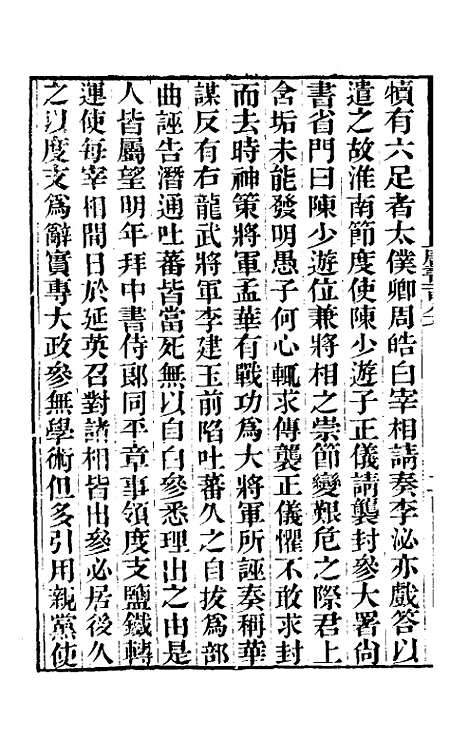 犢有六足者太僕卿周皓白宰相請奏李泌亦戲答以
遣之故淮南節度使陳少遊子正儀請襲封參大署尚
書省門曰陳少遊位兼將相之崇節變艱危之際君上
含垢未能發明愚子何心輒求傳襲正儀懼不敢求封
而去時神策將軍孟華有戰功為大將軍所誣奏稱華
謀反有右龍武將軍李建玉前陷吐蕃久之自拔為部
曲誣告潛通吐蕃皆當死無以自白參悉理出之由是
人皆屬望明年拜中書侍郎同平章事領度支鹽鐵轉
運使每宰相間日於延英召對諸相皆出參必居後久
之以度支為辭實專大政參無學術但多引用親黨使